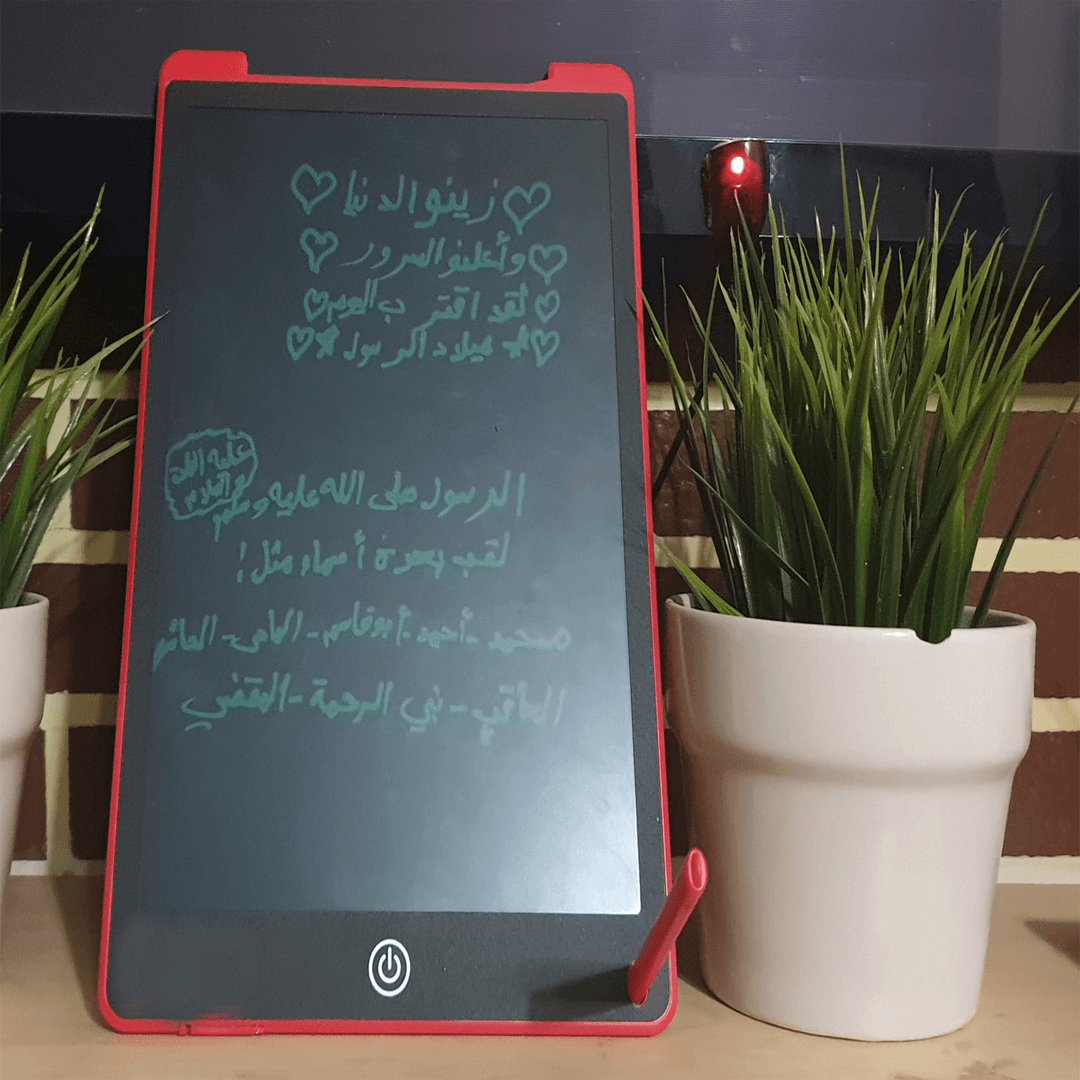 زينو الدنيا
وأعلنو السرور
لقد اقترب اليوم
ميلاد الرسول
عليه الصلاة
و السلام
الرسول صلى الله عليه وسلم
لقب بعدة أسماء مثل !
محمد - أحمد - أبو قاسم - الماحي - الحاشر
العاقب - نبي الرحمة - المقفي